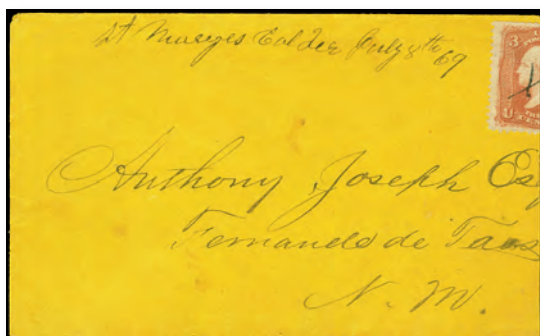 St Maryes Col Ter July 8th 69
3
U
Anthony Joseph Esq
Fernando de Taos
N. M.